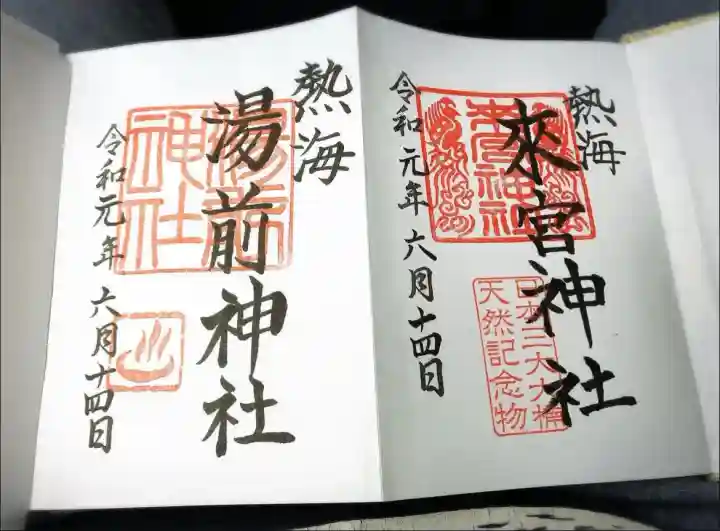 熱海
來宮神社
令和元年六月十四日
來宮神社
日本三大大楠
天然記念物
熱海
湯前神社
令和元年六月十四日
湯前
神社